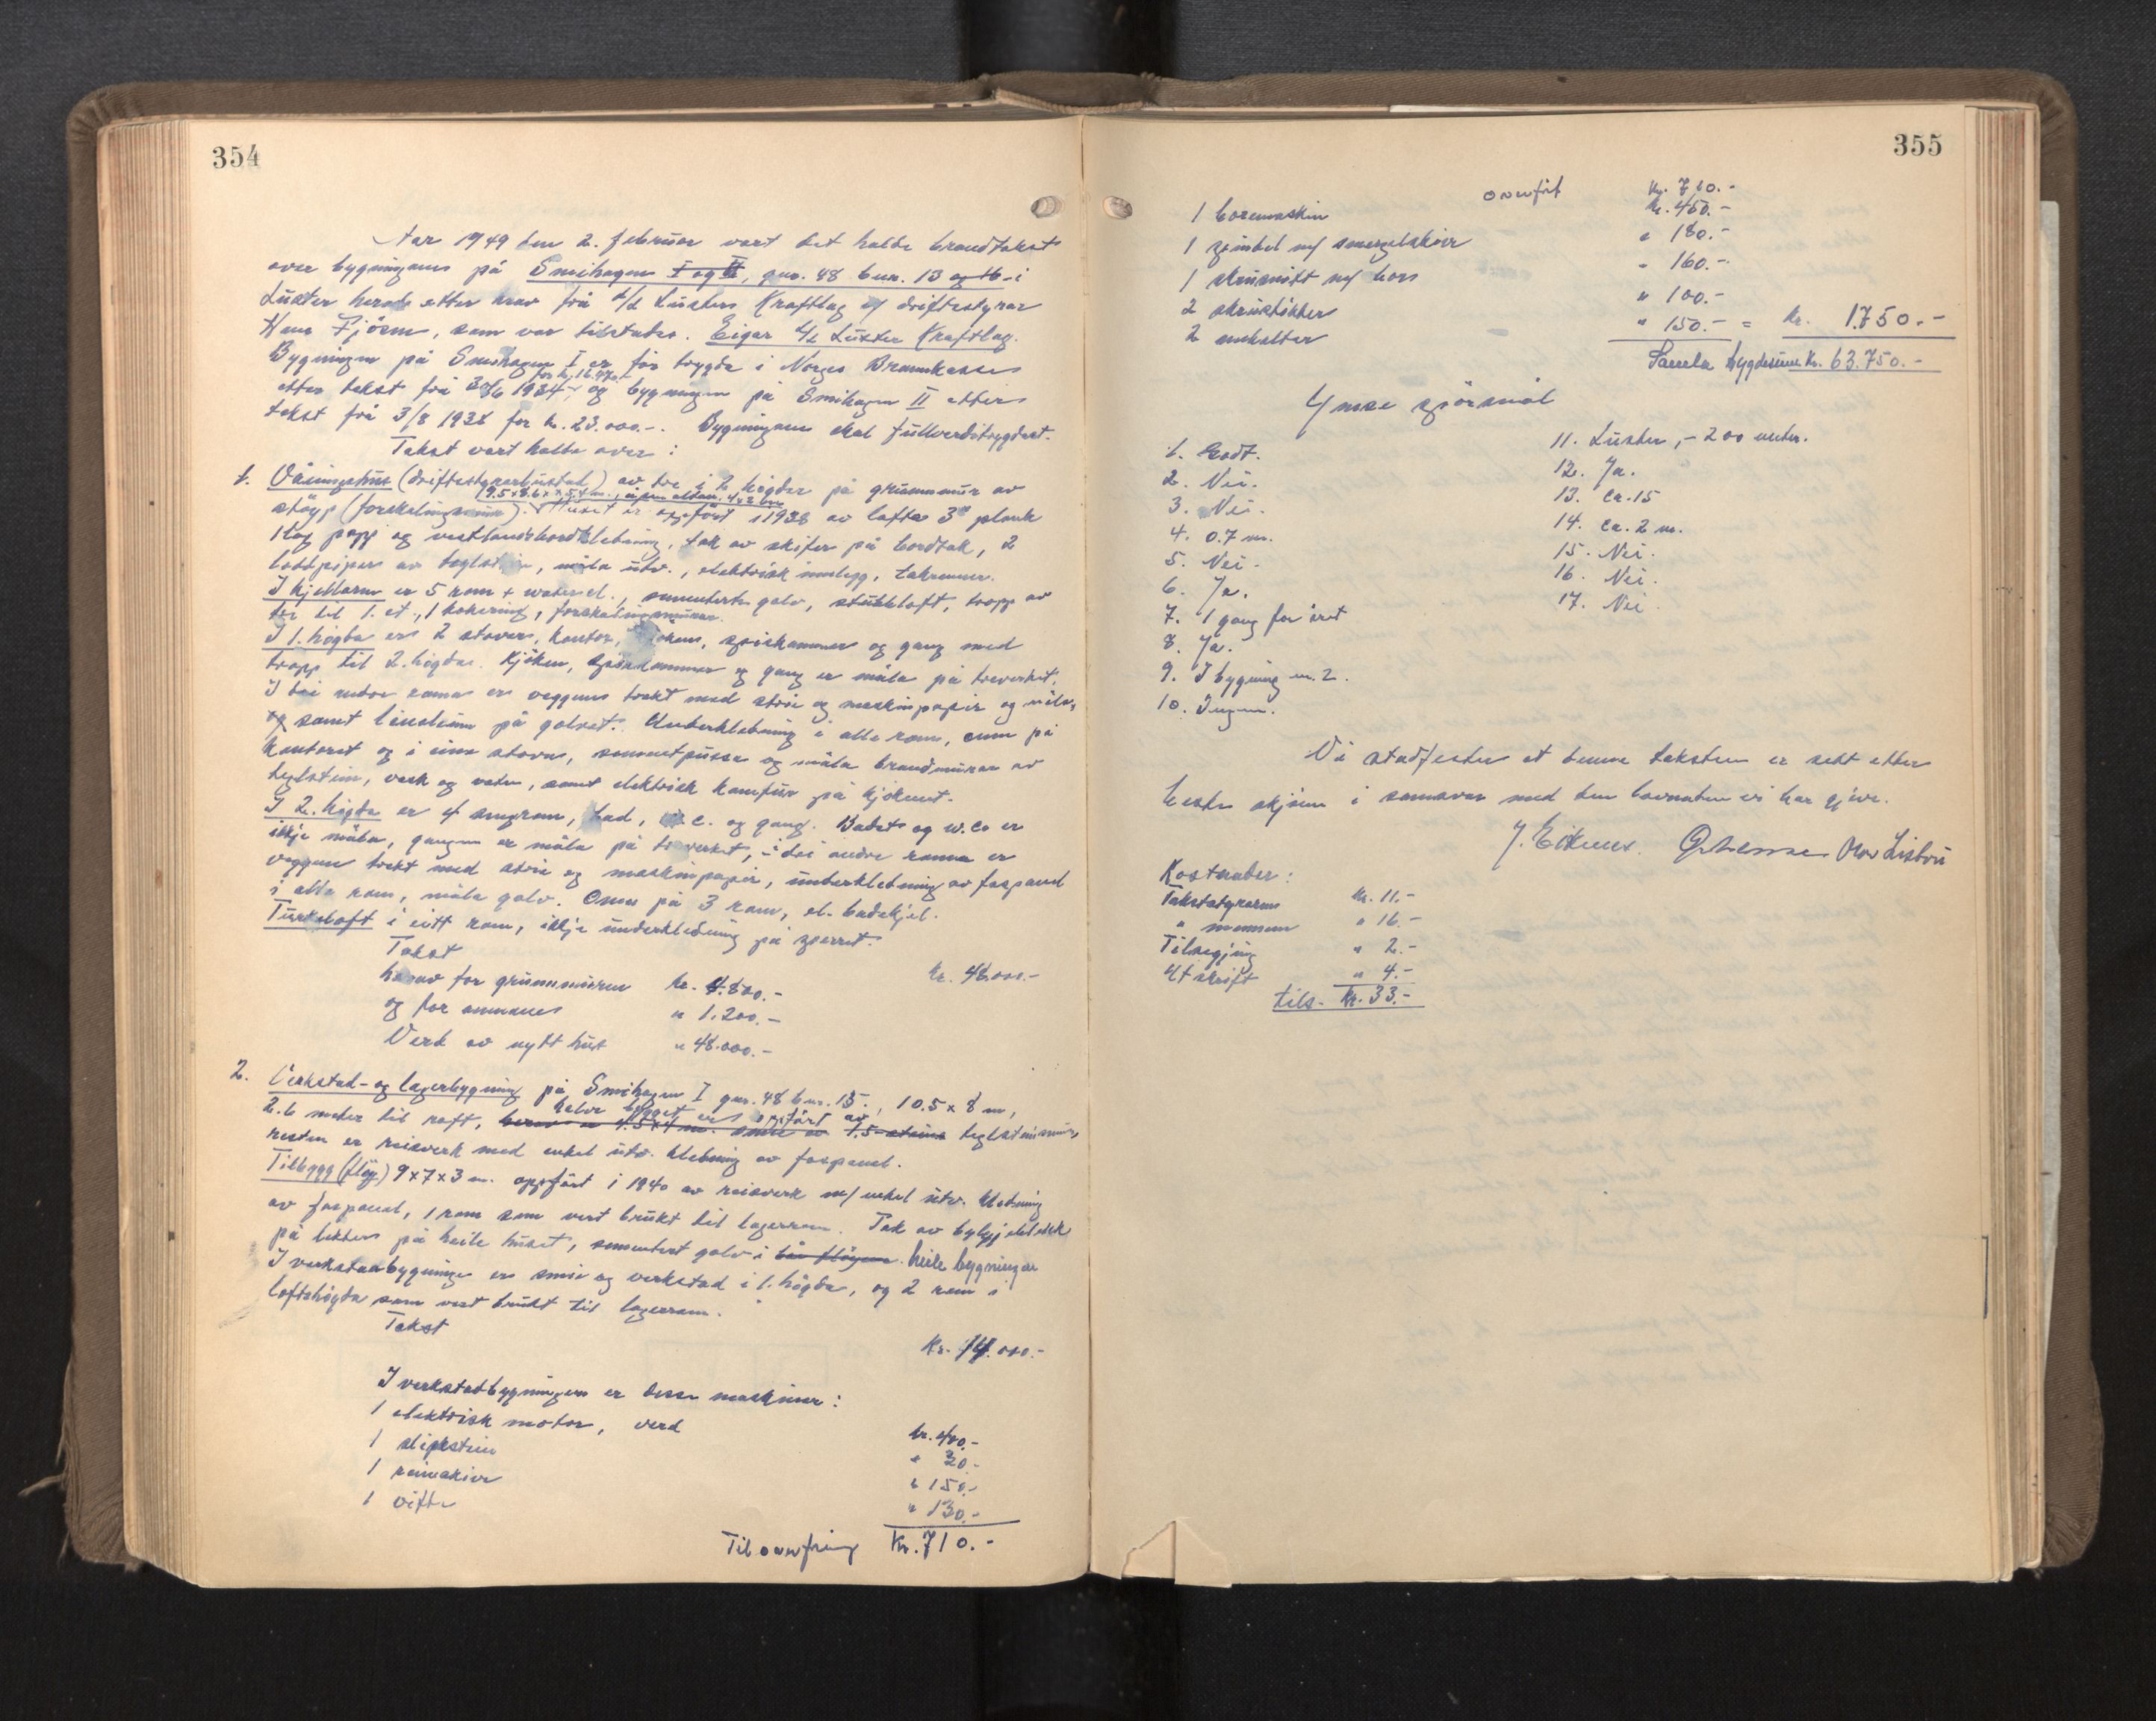 354
Aar 1949 den 2. februar vart det halde brandtakst
over bygningane på Smihagen I og II, gnr. 48 bnr. 13 og 16 i
Luster herad etter krav frå A/L Luster Kraftlag v/ driftsstyrar
Hans Fjösne, som var tilstades. Eigar A/L Luster Kraftlag.
Bygningen på Smihagen I er før trygda i Norges Brannkasse
for kr. 16.970.-
etter takst frå 30/6 1934, og bygningen på Smihagen II etter
takst frå 3/8 1938 for kr. 23.000.-. Bygningane skal fullverditrygdast.
Takst vart halde over:
1. Våningshus (driftsstyrarbustad) av tre i 2 högder på grunnmur av
9.5 x 8.6 x 5.4 m., open altan 4x2 m
støyp (forskalingsmur). Huset er oppfört i 1938 av lafta 3" plank
1 lag papp og vestlandsbordkledning, tak av skifer på bordtak, 2
loddpiper av teglstein, måla utv., elektrisk innlegg, takrenner.
I kjellaren er 5 rom + waterel., sementert golv, stubbloft, tropp av
tre til 1. et., 1 kokering, forskalingsmurar.
I 1. högda er 2 stover, kontor, kjöken, spiskammer og gang med
tropp til 2. högda. Kjöken, spiskammer og gang er måla på treverket,
I dei andre romma er veggene trekt med strie og maskinpapir og måla,
og samt linoleum på golvet. Underkledning i alle rom, omn på
kontoret og i eine stova, sementpussa og måla brandmurar av
teglstein, vask og vatn, samt elektrisk komfur på kjökenet.
I 2. högda er 4 sengrom, bad, w.c. og gang. Badet og w.c. er
ikkje måla, gangen er måla på treverket, i dei andre romma er
veggene trekt med strie og maskinpapir, underkledning av faspanel
i alle rom, måla golv. Omn på 3 rom, el. badekjel.
Turkeloft i eitt rom, ikkje underkledning på sperret.
Takst kr. 48.000.-
herav for grunnmuren kr. 4.800.-
og for omnane " 1.200.-
Verd av nytt hus " 48.000.-
2. Verkstad- og lagerbygning på Smihagen I gnr. 48 bnr. 13., 10.5 x 8 m,
halve bygget er oppfört av
2.6 meter til raft, 4.5x4 m. 1.5 steins teglsteinsmur,
resten er reisverk med enkel utv. kledning av faspanel.
Tilbygg (fløy) 9x7x3 m. oppfört i 1940 av reisverk m/ enkel utv. kledning
av faspanel, 1 rom som vert brukt til lagerrom. Tak av bylgjeblekk
på lekter på heile huset, sementert golv i heile bygningen
I verkstadbygningen er smie og verkstad i 1. högda, og 2 rom i
loftshögda som vert brukt til lagerrom.
Takst
Kr. 14.000.-
I verkstadbygningen er desse maskiner:
1 elektrisk motor, verd kr. 400.-
1 slipestein " 30.-
1 reimskive " 150.-
1 vifte " 130.-
Til overföring Kr. 710.-
355
overfört Kr. 710.-
1 boremaskin Kr. 450.-
1 spindel m/ smergelskive " 180.-
1 skrusnitt m/ bor " 160.-
2 skrustikker " 100.-
2 ambolter " 150.- = Kr. 1.750.-
Samla trygdesum Kr. 63.750.-
Ymse spörsmål
1. Godt.
2. Nei.
3. Nei.
4. 0.7 m.
5. Nei.
6. Ja.
7. 1 gang for året
8. Ja.
9. I bygning nr. 2.
10. Ingen.
11. Luster, - 200 meter.
12. Ja.
13. ca. 15
14. ca. 2 m.
15. Nei.
16. Nei.
17. Nei.
Vi stadfester at denne taksten er sett etter
beste skjönn i samsvar med den lovnaden vi har gjeve.
J. Eikum.
Kostnader:
Takststyraren kr. 11.-
" mennene " 16.-
Tilseging " 2.-
Utskrift " 4.-
tils. Kr. 33.-